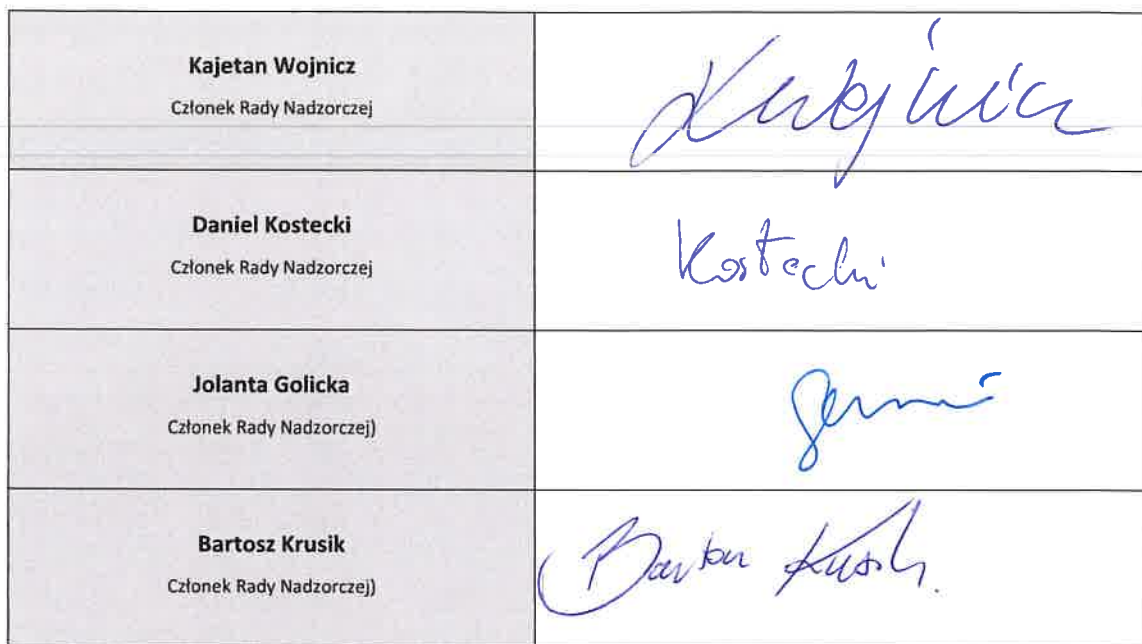 Kajetan Wojnicz
Członek Rady Nadzorczej
Daniel Kostecki
Członek Rady Nadzorczej
Kostecki
Jolanta Golicka
Członek Rady Nadzorczej)
Bartosz Krusik
Członek Rady Nadzorczej)